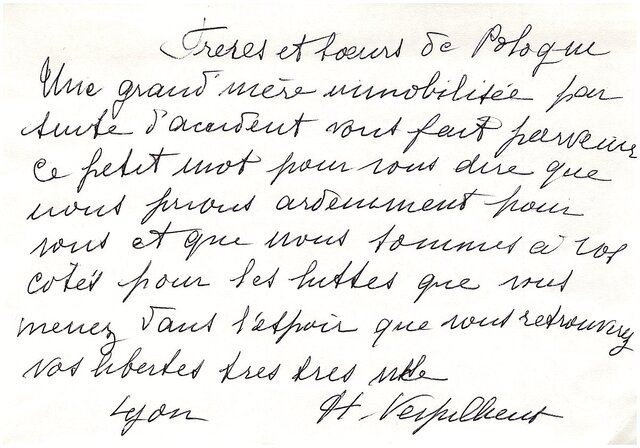 Freres et soeurs de Pologne
Une grand'mère immobilisée par
suite d'accident vous fait parvenir
ce petit mot pour vous dire que
nous prions ardemment pour
vous et que nous sommes à vos
cotés pour les luttes que vous
menez dans l'espoir que vous retrouviez
vos libertes tres tres vite
Lyon H.